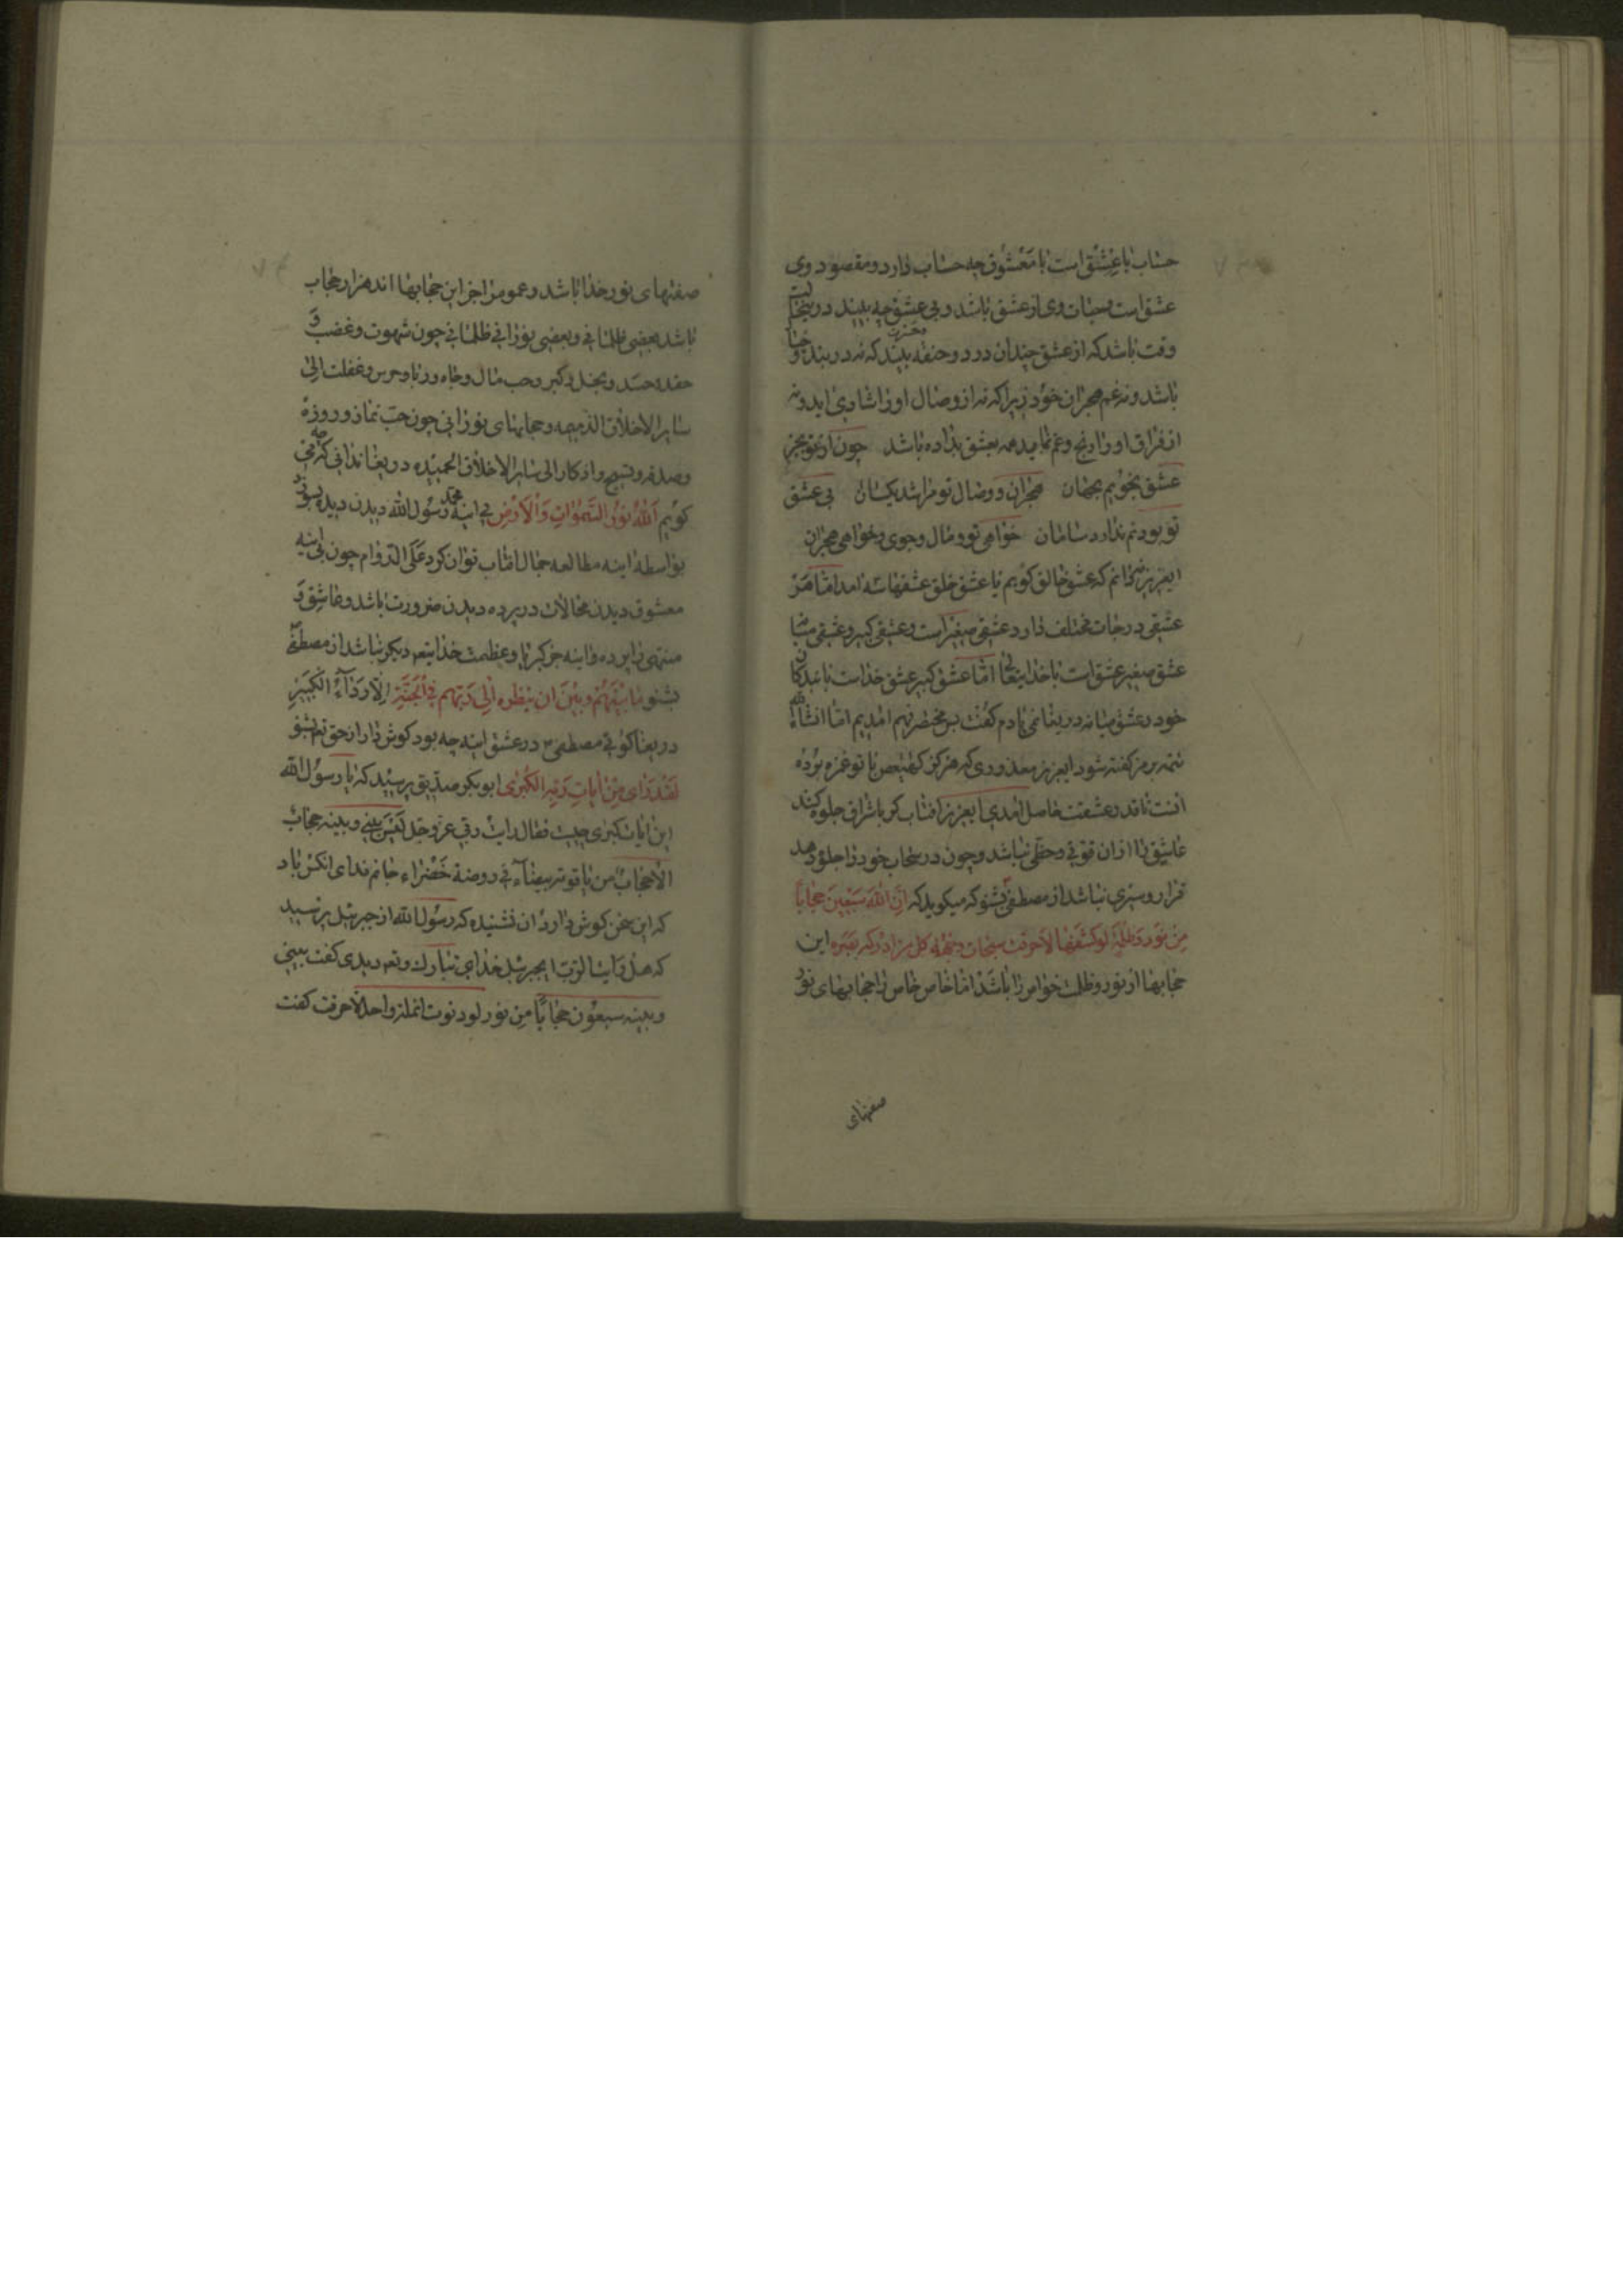 حساب با عشق است با معشوق چه حساب دارد و مقصود وی
عشق است و حیات وی از عشق باشد و بی عشق چه بیند در سخت
وقت باشد که از عشق چندان درد و حسرت بیند که نه در بند
باشد و نه غم هجران خورد زیرا که نه از وصال او را شادی اید و نه
از فراق او را رنج و غم نماید همه بعشق بداده باشد چون از تو بجز
عشق نجویم بجهان هجران و وصال تو مرا شد یکسان بی عشق
تو بودنم ندارد سامان خواهی تو وصال جوی و خواهی هجران
ایعزیز ندانم که عشق خالق کویم یا عشق خلق عشقها سه امد اما هر
عشقی درجات مختلف دارد عشقی صغیر است و عشقی کبیر و عشقی میانه
عشق صغیر عشق است با خدایتعالی اما عشق کبیر عشق خداست با بندکان
خود و عشق میانه دریغا نمی یارم کفت بس مختصر فهم امدیم اما انشاءالله
شمه برمز کفته شود ایعزیز معذوری که هرکز کهیعص با تو غمزه نزده
است تا قدر عشقت حاصل امدی ایعزیز افتاب که باشراق جلوه کند
عاشق را از ان قوتی و حظی نباشد و چون در سحاب خود را جلوه دهد
قرار و سیری نباشد از مصطفی بشنو که میکوید که ان الله سبعین حجابا
من نور و ظلمة لو کشفها لاحرقت سبحات وجهه کل من ادرکه بصره این
حجابها از نور و ظلمت خواص را باشد اما خاص خاص را حجابهای نور
صفتهای
صفتهای نور خدا باشد و عموم را جز این حجابها اند هزار حجاب
باشد بعضی ظلمانی و بعضی نورانی ظلمانی چون شهوت و غضب و
حقد و حسد و بخل و کبر و حب مال و جاه و ریا و حرص و غفلت الی
سایر الاخلاق الذمیمه و حجابهای نورانی چون حب نماز و روزه
و صدقه و تسبیح و اذکار الی سایر الاخلاق الحمیده دریغا ندانی که چه می
کویم الله نور السموات والارض بی اینه محمد رسول الله دیدن دیده بسوزد
بواسطه اینه مطالعه جمال افتاب توان کرد علی الدوام چون بی اینه
معشوق دیدن محالات در پرده دیدن ضرورت باشد و عاشق و
منتهی را پرده و اینه جز کبریا و عظمت خدایتعه دیکر نباشد از مصطفی
بشنو ما بینهم و بین ان ینظروه الی ربهم فی الجنة الا رداء الکبیر
دریغا کوئی مصطفی در عشق اینه چه بود کوش دار از حق تعه بشنو
لقد رای من ایات ربه الکبری ابوبکر صدیق پرسید که یا رسول الله
این ایات کبری چیست فقال رایت ربی عز و جل لیس بینی و بینه حجاب
الا حجاب من یاقوتة بیضاء فی روضة خضراء جانم فدای انکس باد
که این سخن کوش دارد ان نشنیده که رسول الله از جبرئیل پرسید
که هل رایت الرب ایجبرئیل خدای تبارک و تعه دیدی کفت بینی
و بینه سبعون حجابا من نور لو دنوت انملة واحدة لاحرقت کفت